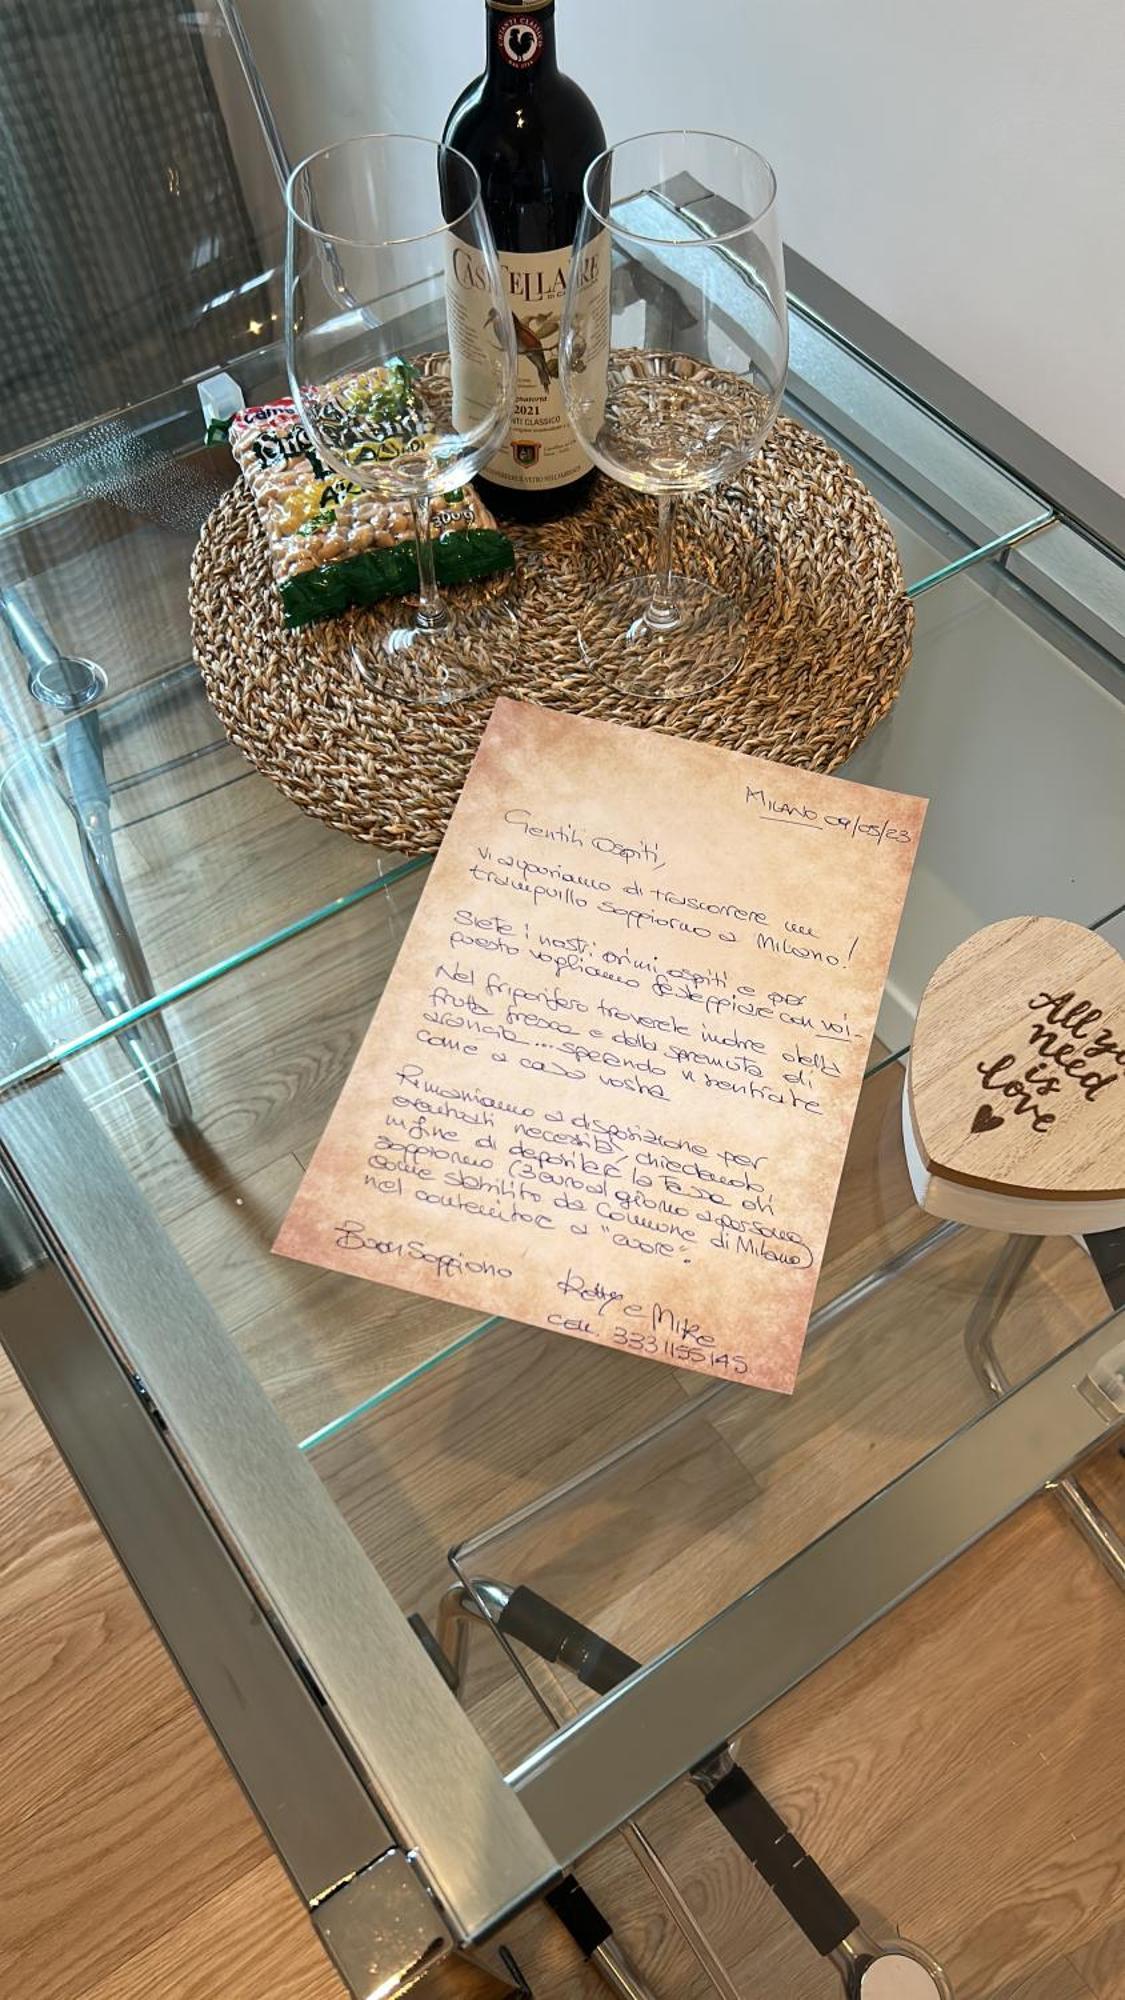 CHIANTI CLASSICO
CASTELLARE
2021
CLASSICO
300g
MILANO 09/05/23
Gentili Ospiti,
vi auguriamo di trascorrere un
tranquillo soggiorno a Milano!
Siete i nostri primi ospiti e per
questo vogliamo festeggiare con voi.
Nel frigorifero troverete inoltre della
frutta fresca e della spremuta di
arancia... sperando vi sentiate
come a casa vostra
Rimaniamo a disposizione per
eventuali necessità, chiedendovi
infine di depositare la Tassa di
Soggiorno (3 euro al giorno a persona,
come stabilito da Comune di Milano)
nel contenitore a "cuore".
Buon Soggiorno
e Mike
CELL. 3331155145
All yo
need
is
love